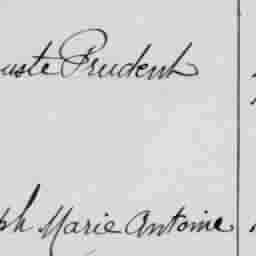 uste Prudent
ph Marie Antoine